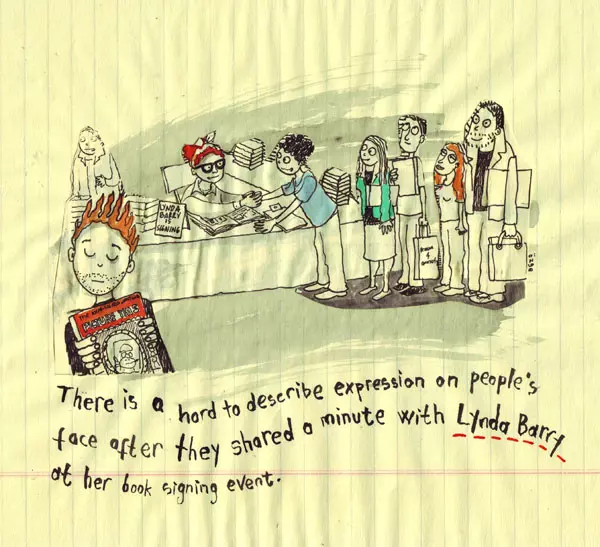 LYNDA
BARRY
IS
SIGNING
There is a hard to describe expression on people's
face after they shared a minute with Lynda Barry
at her book signing event.